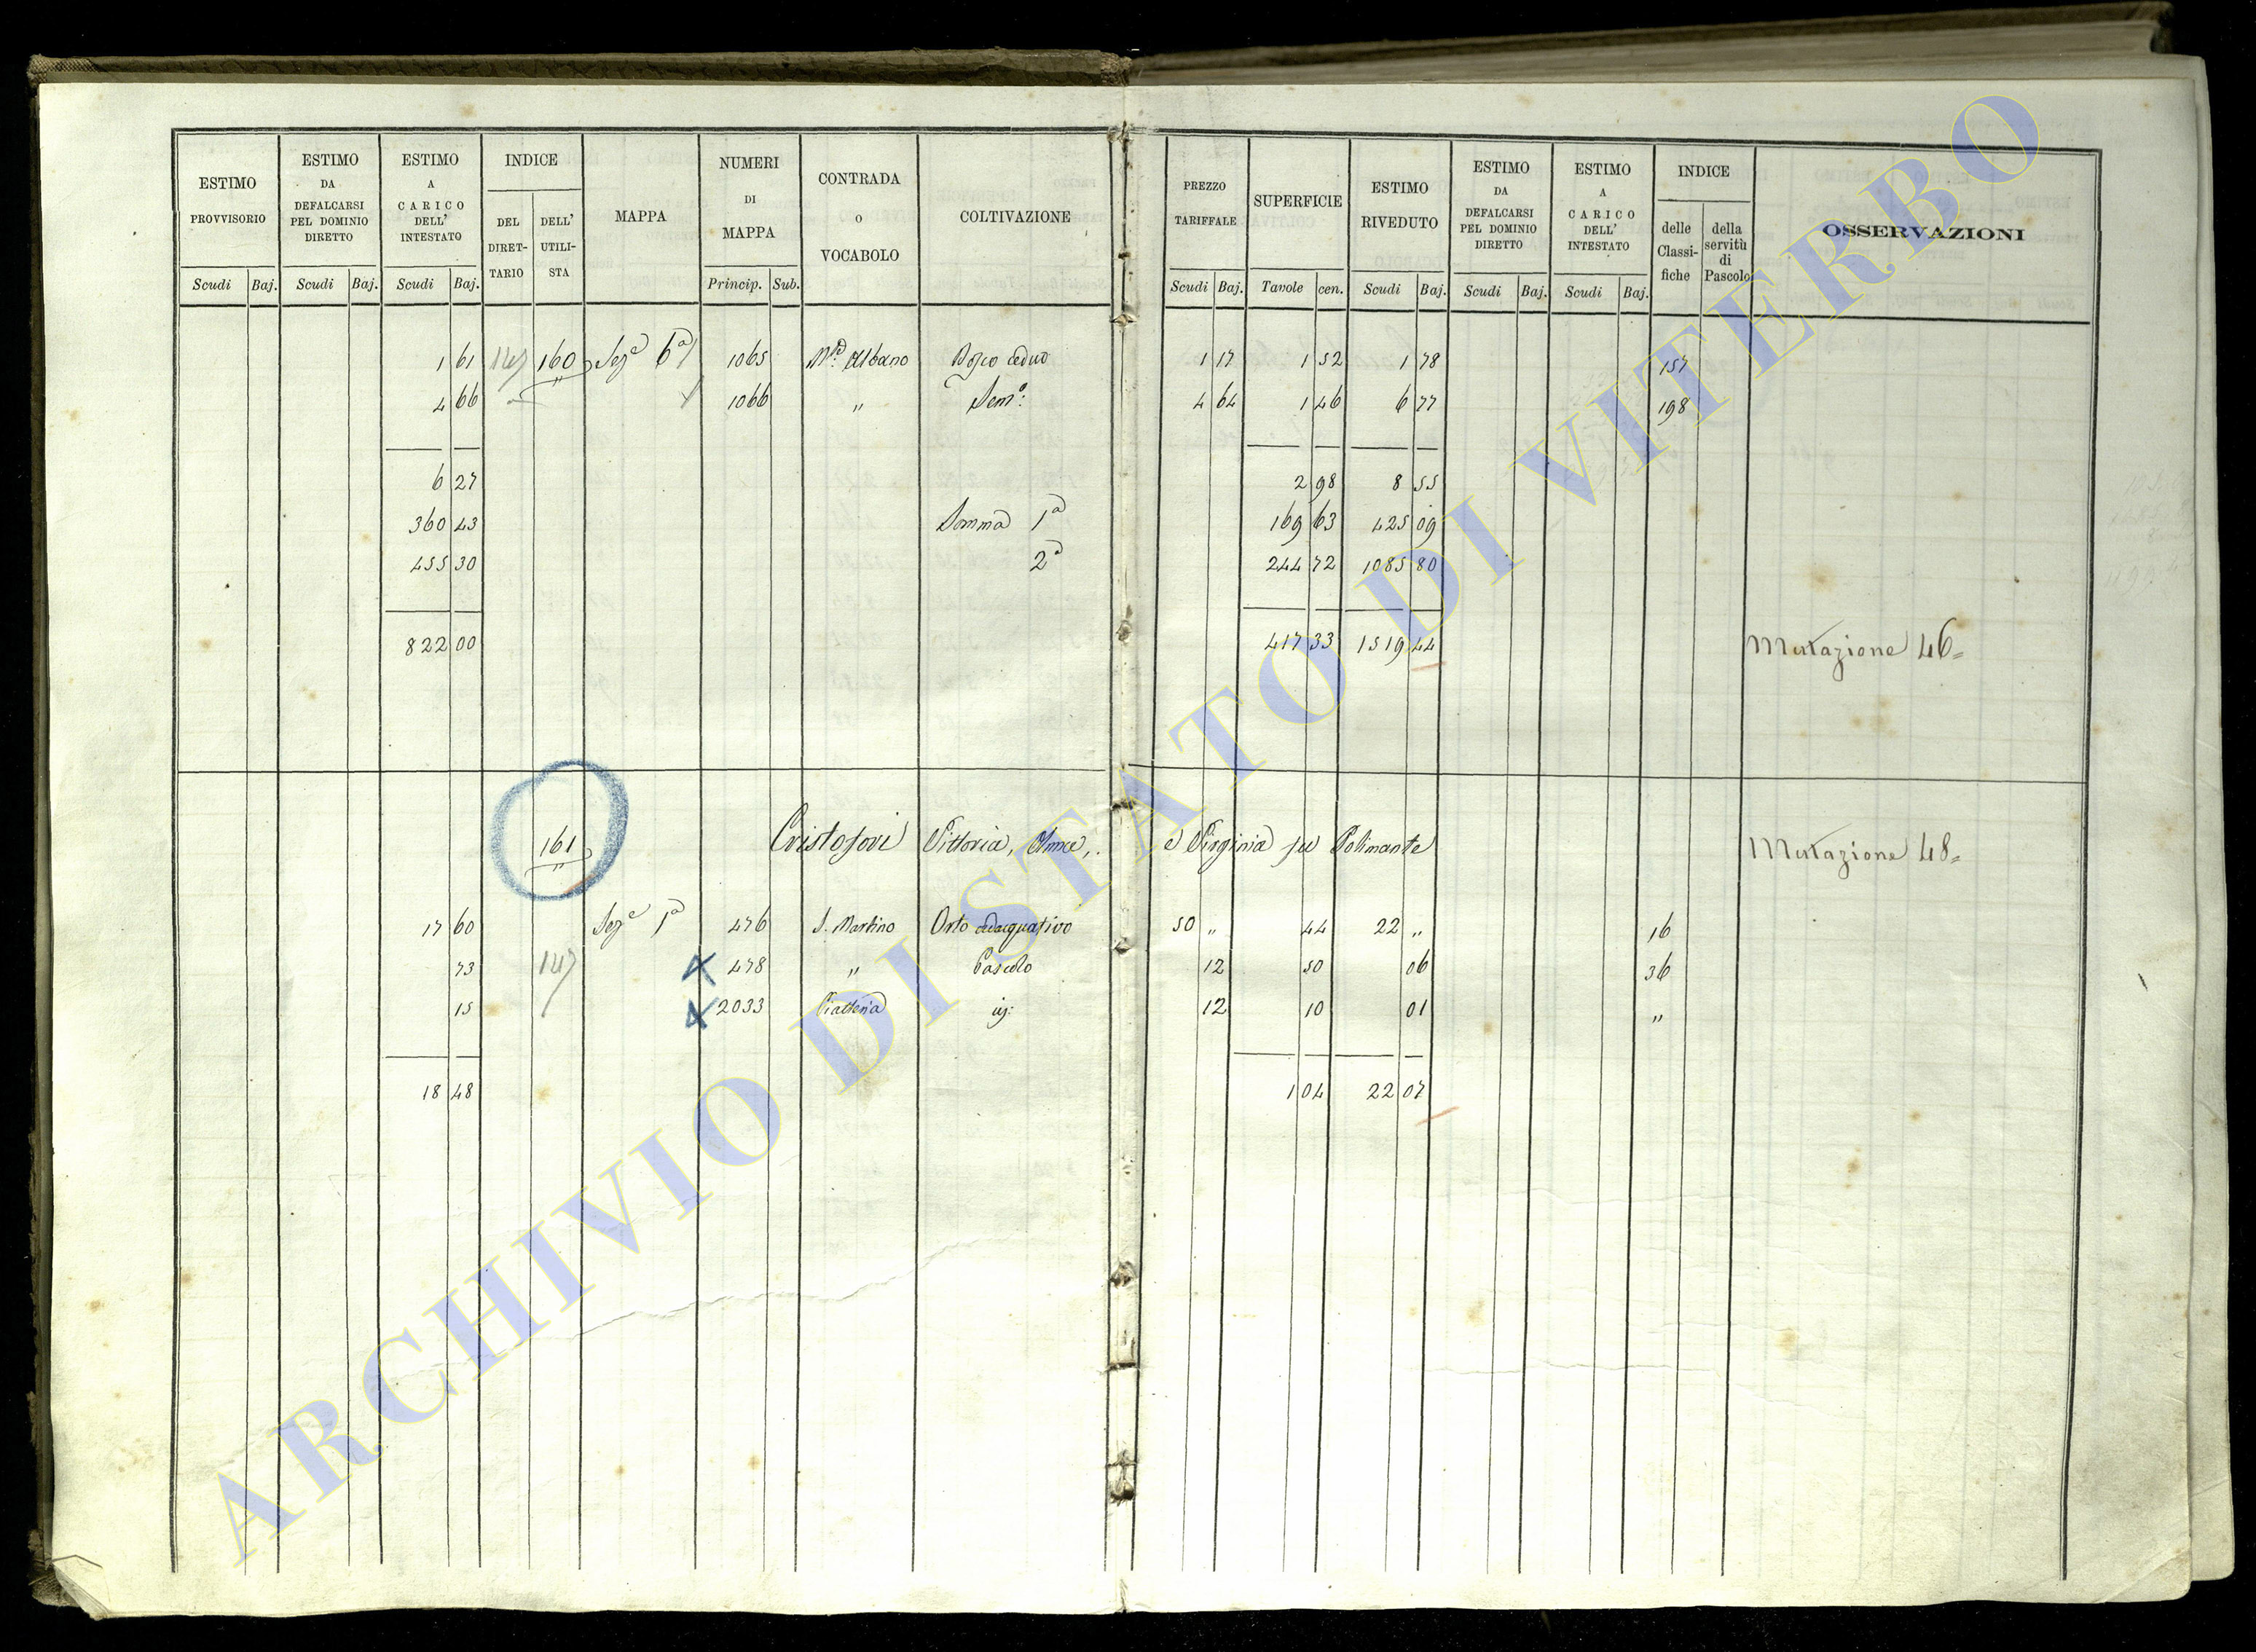 ESTIMO PROVVISORIO
ESTIMO DA DEFALCARSI PEL DOMINIO DIRETTO
ESTIMO A CARICO DELL' INTESTATO
INDICE
DEL DIRET-TARIO
DELL' UTILI-STA
MAPPA
NUMERI DI MAPPA
CONTRADA o VOCABOLO
COLTIVAZIONE
PREZZO TARIFFALE
SUPERFICIE
ESTIMO RIVEDUTO
ESTIMO DA DEFALCARSI PEL DOMINIO DIRETTO
ESTIMO A CARICO DELL' INTESTATO
INDICE
delle Classi-fiche
della servitù di Pascolo
OSSERVAZIONI
Scudi Baj. Scudi Baj. Scudi Baj. Princip. Sub. Scudi Baj. Tavole cen. Scudi Baj. Scudi Baj. Scudi Baj.
1 61 147 160 Sez.e 6a 1065 M.te Albano Bosco ceduo 1 17 1 52 1 78 157
4 66 1066 " Sem.o 4 64 1 46 6 77 198
6 27 2 98 8 55
360 43 Somma 1a 169 63 425 09
455 30 2a 244 72 1085 80
822 00 417 33 1519 44 Mutazione 46=
161 Cristofori Vittoria, Anna, e Virginia fu Polimante Mutazione 48=
17 60 Sez.e 1a 476 S. Martino Orto adacquativo 50 " 44 22 " 16
73 147 478 " Pascolo 12 50 06 36
15 2033 12 10 01 "
18 48 1 04 22 07
ARCHIVIO DI STATO DI VITERBO